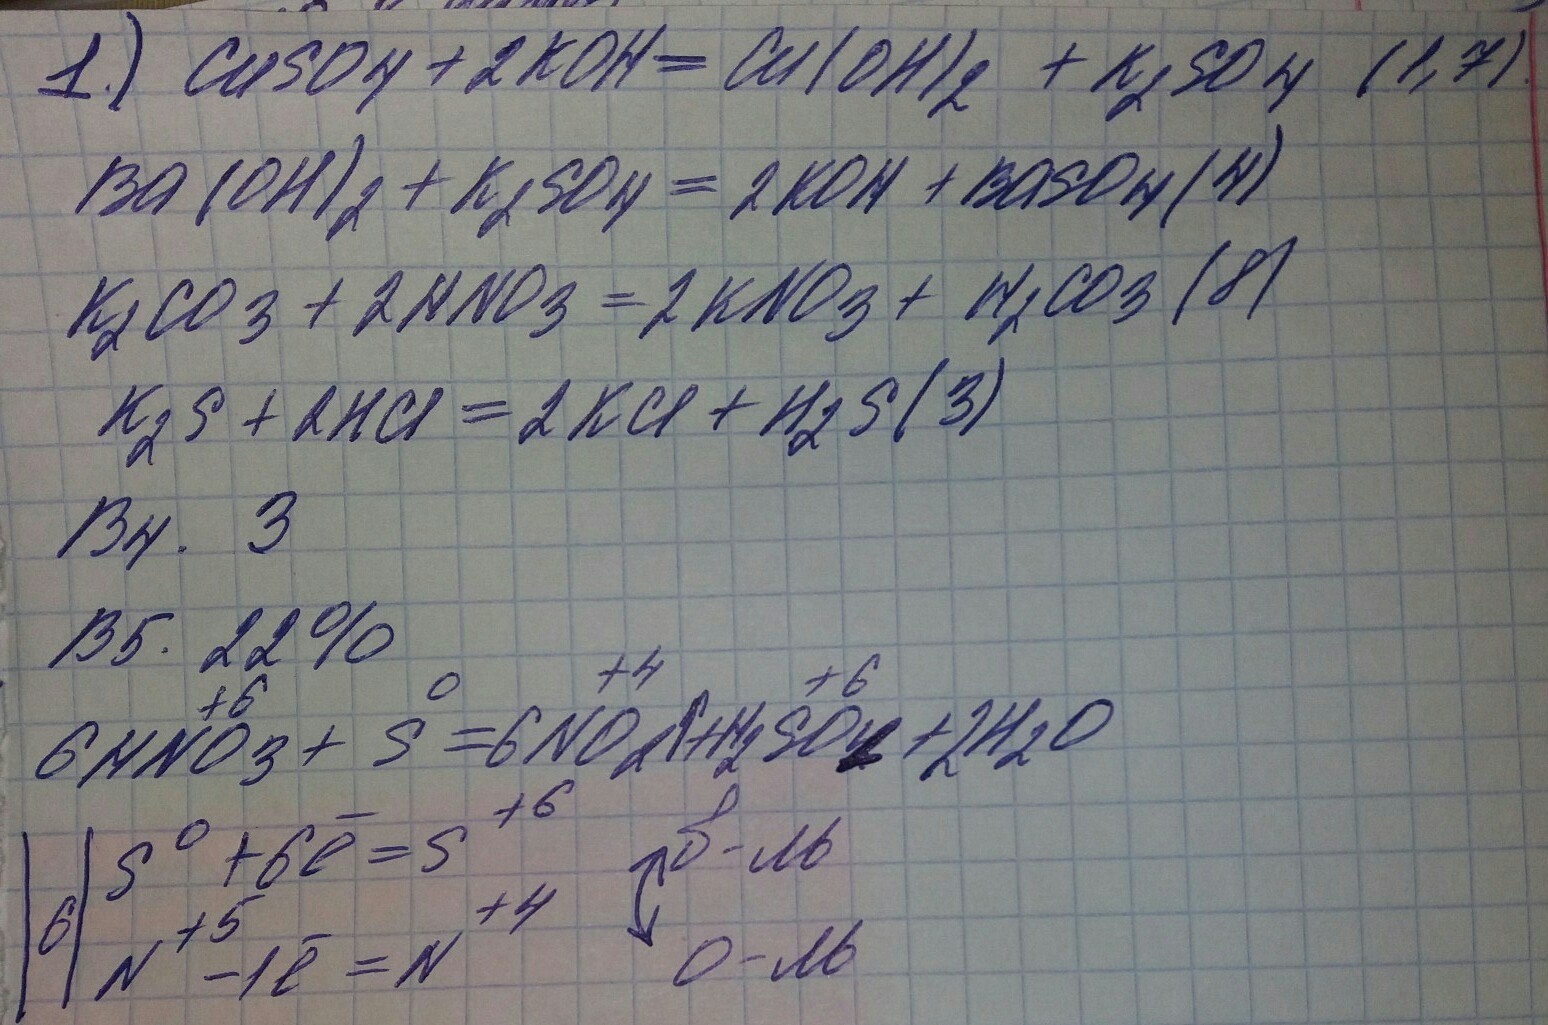 1.) CuSO4 + 2KOH = Cu(OH)2 + K2SO4 (1,7).
Ba(OH)2 + K2SO4 = 2KOH + BaSO4 (4)
K2CO3 + 2HNO3 = 2KNO3 + H2CO3 (8)
K2S + 2HCl = 2KCl + H2S (3)
В4. 3
В5. 22%
+6 0 +4 +6
6HNO3 + S = 6NO2↑ + H2SO4 + 2H2O
S⁰ + 6e̅ = S⁺⁶ в-ль
6 N⁺⁵ - 1e̅ = N⁺⁴ о-ль